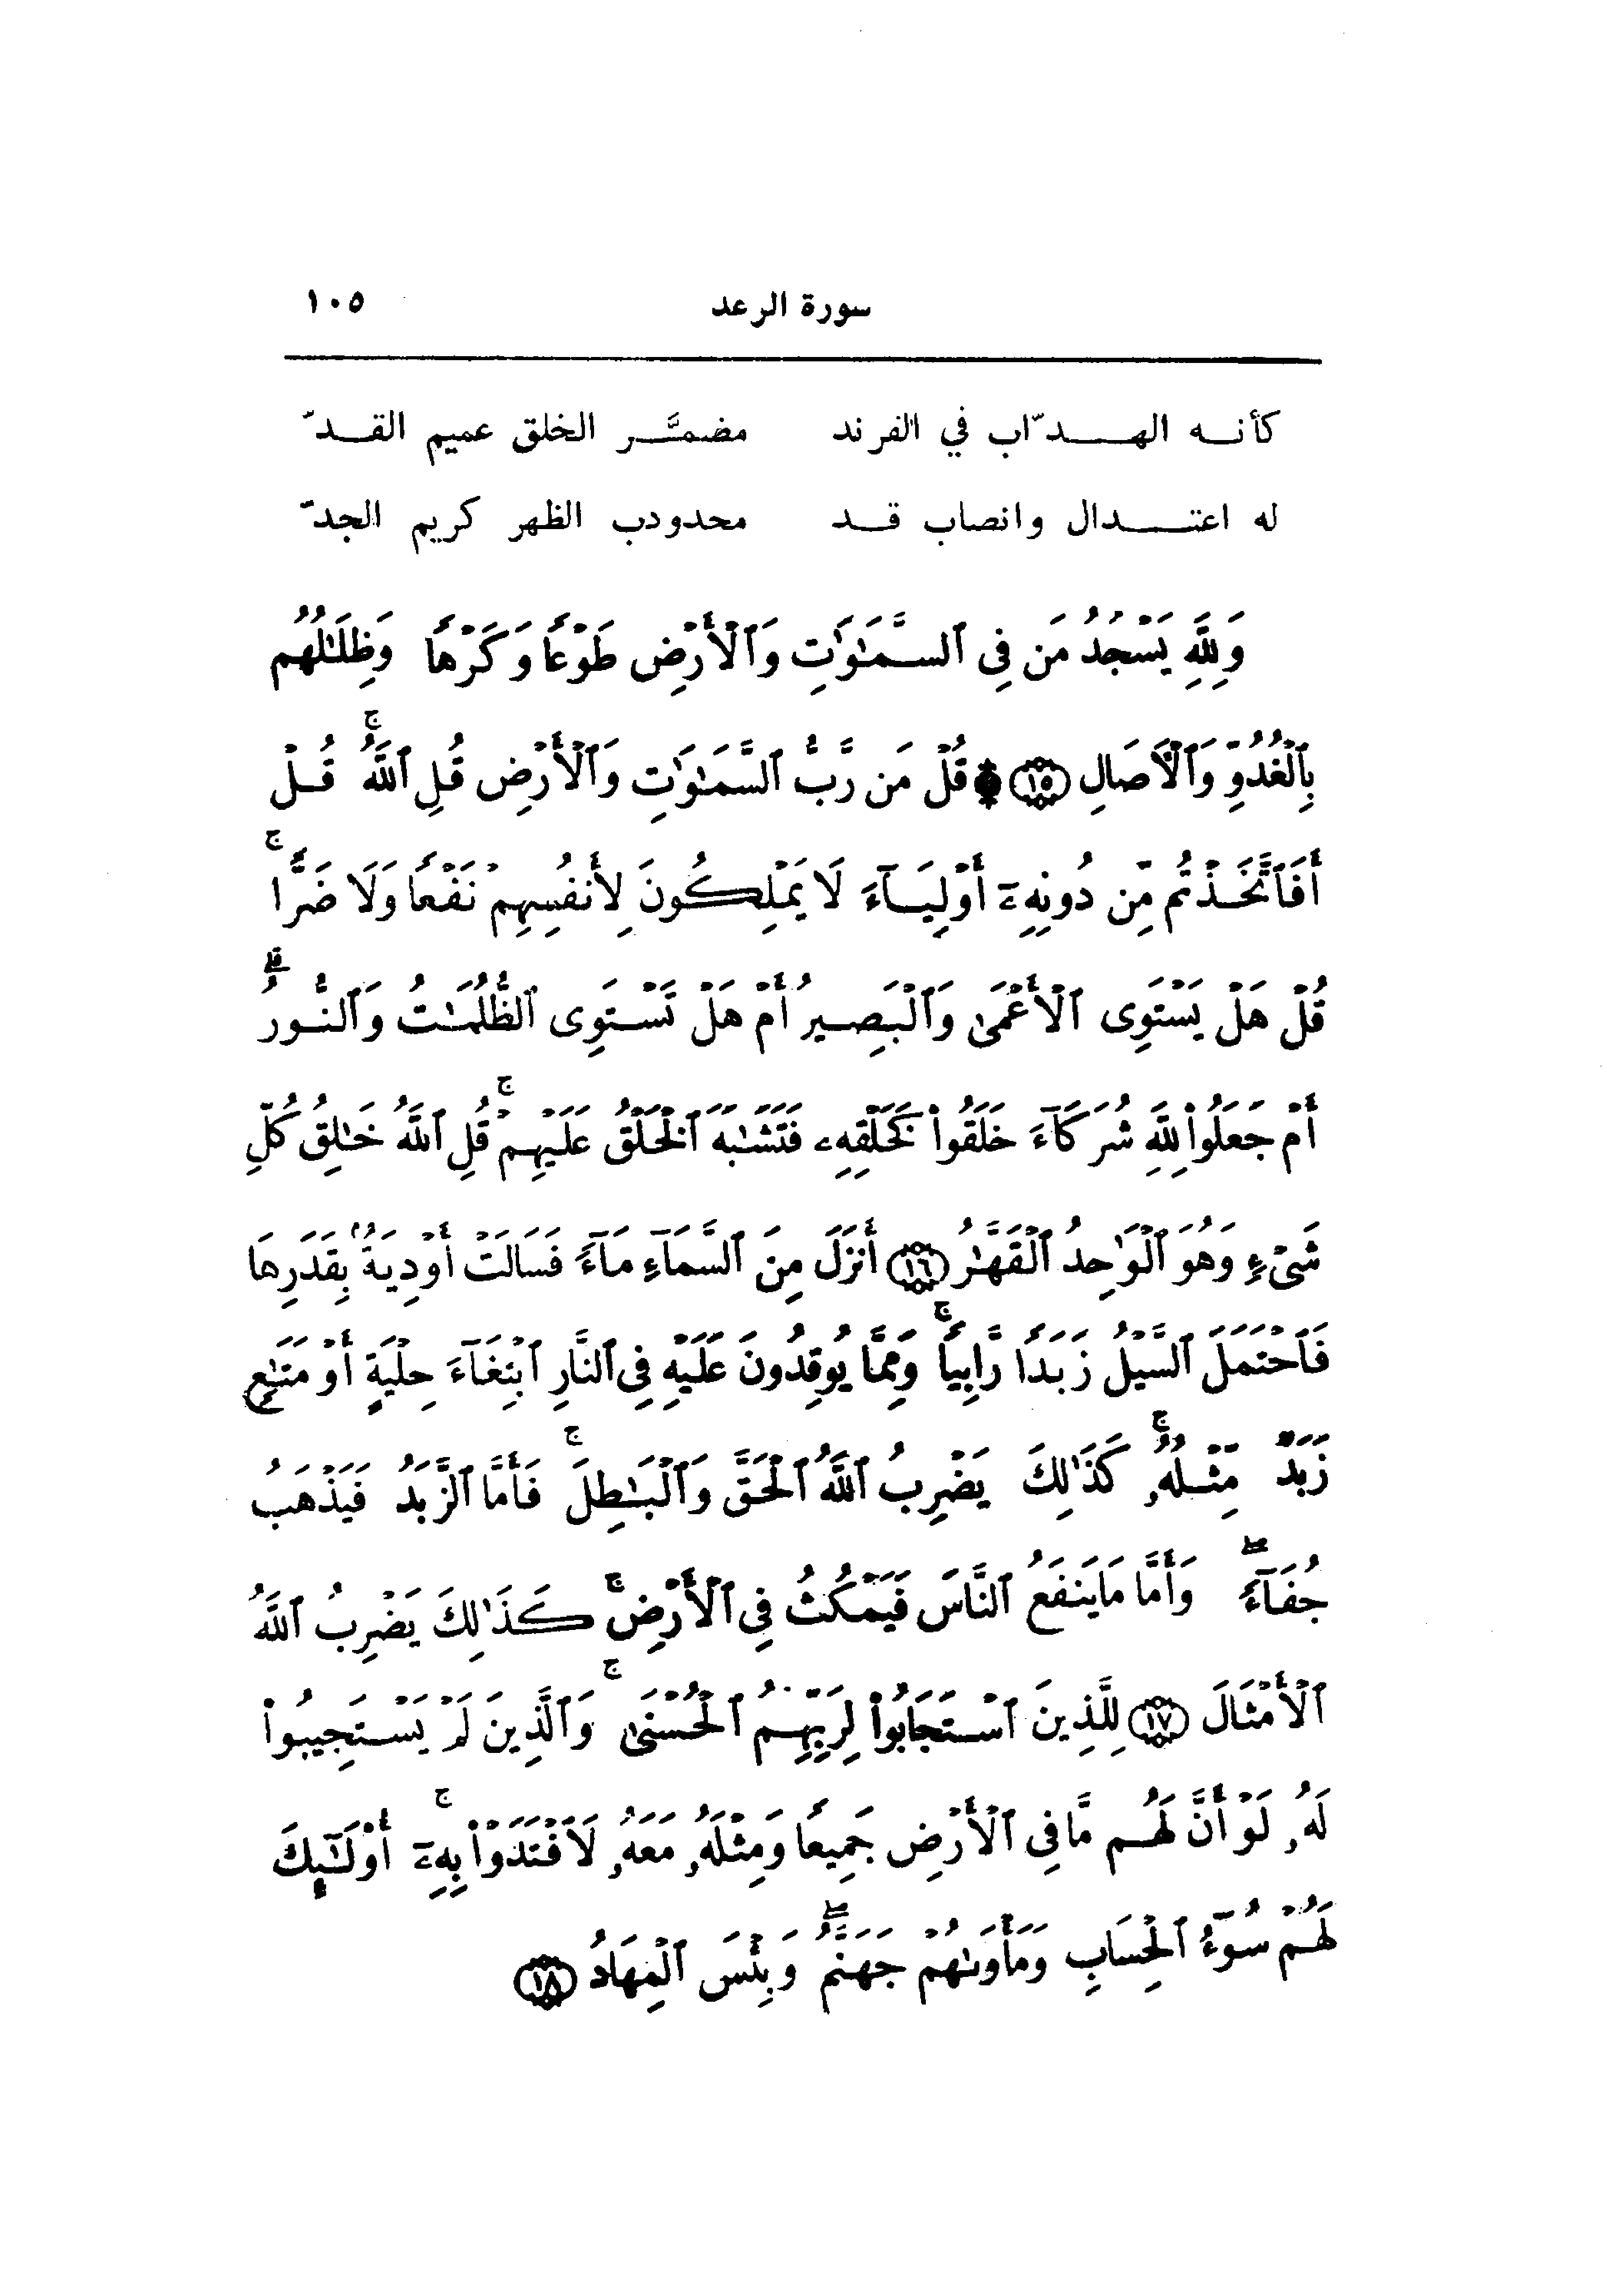 سورة الرعد ١٠٥
كأنه الهدّاب في الفرند مضمَّر الخلق عميم القدّ
له اعتدال وانصاب قد محدودب الظهر كريم الجدّ
وَلِلَّهِ يَسْجُدُ مَن فِى ٱلسَّمَٰوَٰتِ وَٱلْأَرْضِ طَوْعًا وَكَرْهًا وَظِلَٰلُهُم
بِٱلْغُدُوِّ وَٱلْءَاصَالِ ۝١٥ ۞ قُلْ مَن رَّبُّ ٱلسَّمَٰوَٰتِ وَٱلْأَرْضِ قُلِ ٱللَّهُ ۚ قُلْ
أَفَٱتَّخَذْتُم مِّن دُونِهِۦٓ أَوْلِيَآءَ لَا يَمْلِكُونَ لِأَنفُسِهِمْ نَفْعًا وَلَا ضَرًّا ۚ
قُلْ هَلْ يَسْتَوِى ٱلْأَعْمَىٰ وَٱلْبَصِيرُ أَمْ هَلْ تَسْتَوِى ٱلظُّلُمَٰتُ وَٱلنُّورُ ۗ
أَمْ جَعَلُوا۟ لِلَّهِ شُرَكَآءَ خَلَقُوا۟ كَخَلْقِهِۦ فَتَشَٰبَهَ ٱلْخَلْقُ عَلَيْهِمْ ۚ قُلِ ٱللَّهُ خَٰلِقُ كُلِّ
شَىْءٍ وَهُوَ ٱلْوَٰحِدُ ٱلْقَهَّٰرُ ۝١٦ أَنزَلَ مِنَ ٱلسَّمَآءِ مَآءً فَسَالَتْ أَوْدِيَةٌۢ بِقَدَرِهَا
فَٱحْتَمَلَ ٱلسَّيْلُ زَبَدًا رَّابِيًا ۚ وَمِمَّا يُوقِدُونَ عَلَيْهِ فِى ٱلنَّارِ ٱبْتِغَآءَ حِلْيَةٍ أَوْ مَتَٰعٍ
زَبَدٌ مِّثْلُهُۥ ۚ كَذَٰلِكَ يَضْرِبُ ٱللَّهُ ٱلْحَقَّ وَٱلْبَٰطِلَ ۚ فَأَمَّا ٱلزَّبَدُ فَيَذْهَبُ
جُفَآءً ۖ وَأَمَّا مَا يَنفَعُ ٱلنَّاسَ فَيَمْكُثُ فِى ٱلْأَرْضِ ۚ كَذَٰلِكَ يَضْرِبُ ٱللَّهُ
ٱلْأَمْثَالَ ۝١٧ لِلَّذِينَ ٱسْتَجَابُوا۟ لِرَبِّهِمُ ٱلْحُسْنَىٰ ۚ وَٱلَّذِينَ لَمْ يَسْتَجِيبُوا۟
لَهُۥ لَوْ أَنَّ لَهُم مَّا فِى ٱلْأَرْضِ جَمِيعًا وَمِثْلَهُۥ مَعَهُۥ لَٱفْتَدَوْا۟ بِهِۦٓ ۚ أُو۟لَٰٓئِكَ
لَهُمْ سُوٓءُ ٱلْحِسَابِ وَمَأْوَىٰهُمْ جَهَنَّمُ ۖ وَبِئْسَ ٱلْمِهَادُ ۝١٨